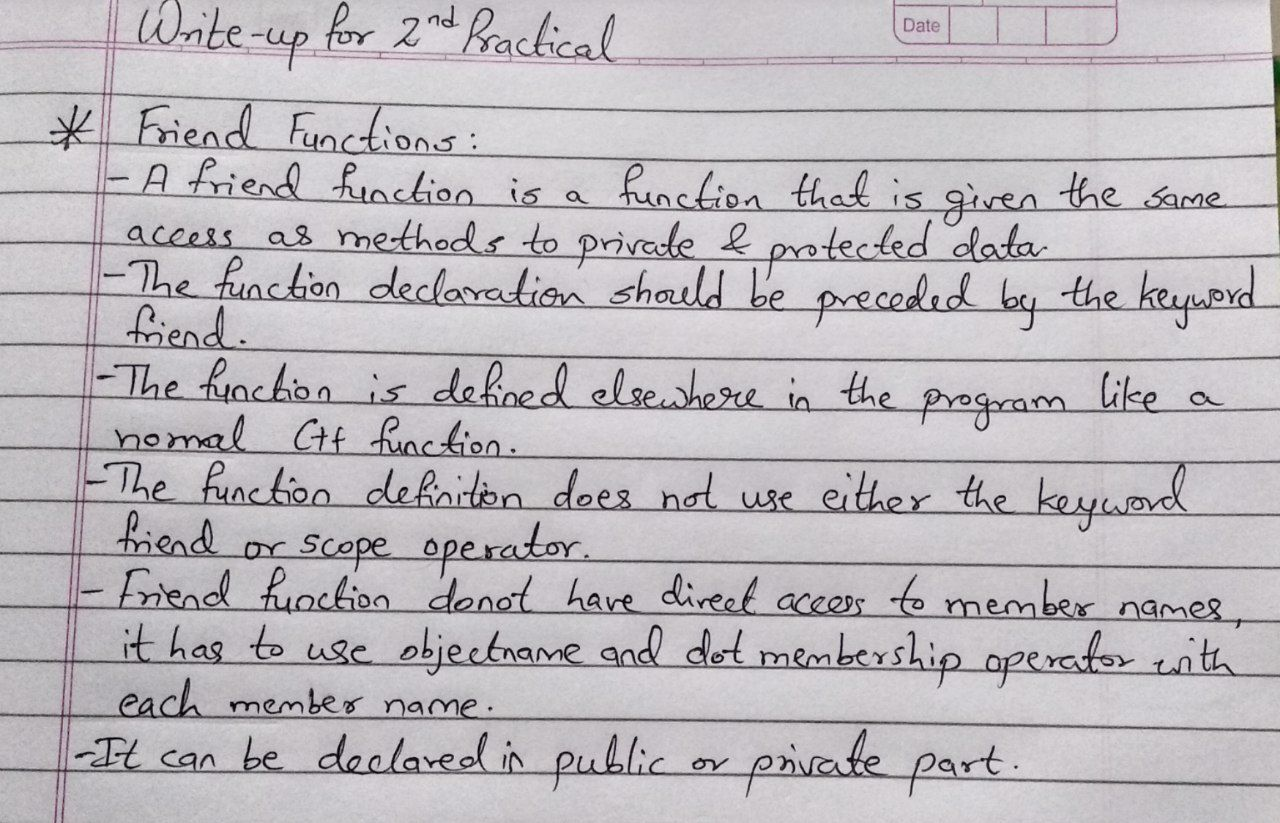 Write-up for 2nd Practical
Date
* Friend Functions:
- A friend function is a function that is given the same
access as methods to private & protected data.
- The function declaration should be preceded by the keyword
friend.
- The function is defined elsewhere in the program like a
normal C++ function.
- The function definition does not use either the keyword
friend or scope operator.
- Friend function donot have direct access to member names,
it has to use objectname and dot membership operator with
each member name.
- It can be declared in public or private part.